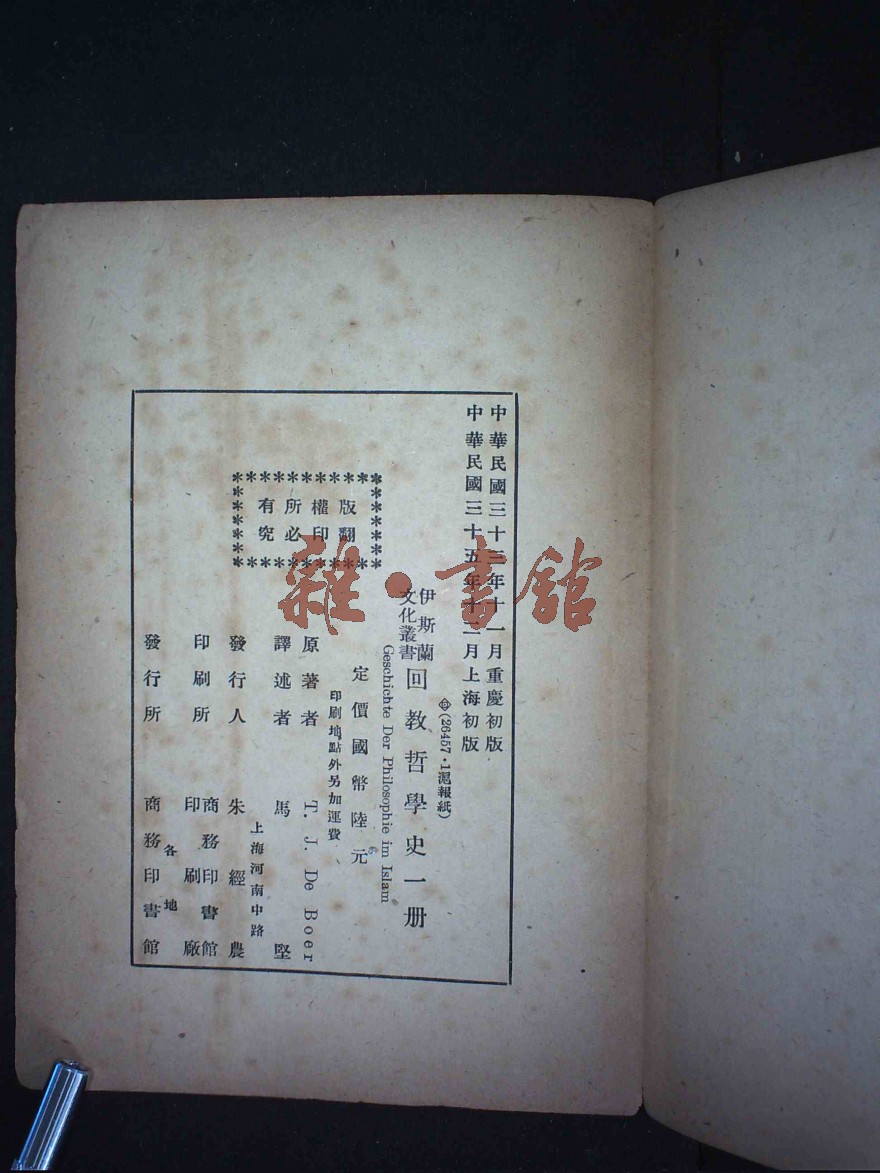 中華民國三十三年十一月重慶初版
中華民國三十五年十二月上海初版
(26457·1滬報紙)
伊斯蘭
文化叢書
回教哲學史一册
Geschichte Der Philosophie im Islam
定價國幣陸元
印刷地點外另加運費
版權所有
翻印必究
原著者 T. J. De Boer
譯述者 馬堅
上海河南中路
發行人 朱經農
印刷所 商務印書館
印刷廠
各地
發行所 商務印書館
雜·書館